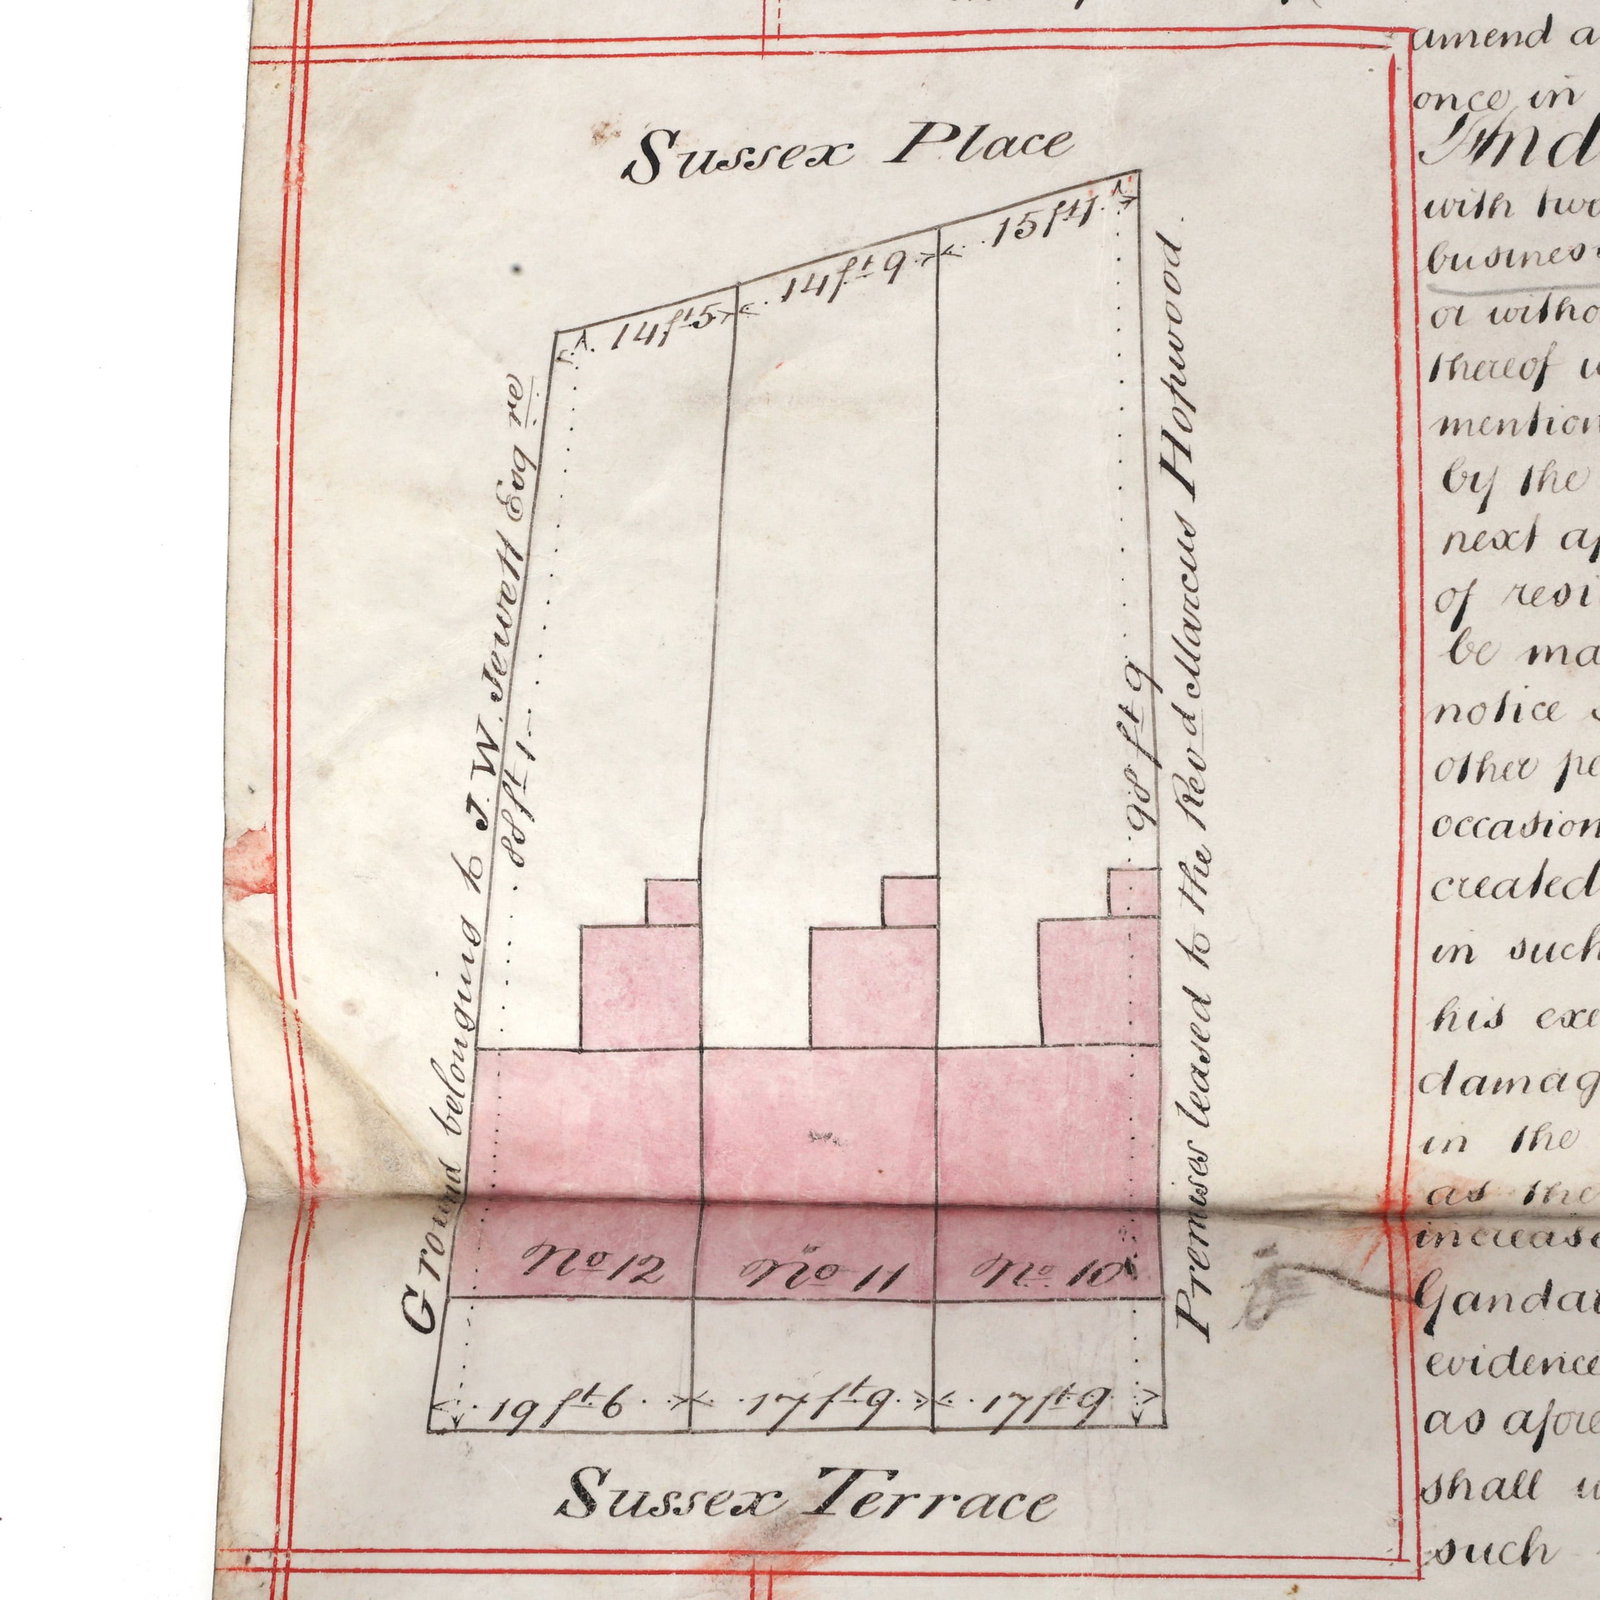 Sussex Place
14ft5
14ft9
15ft1
Ground belonging to J. W. Jewett Esqre
88ft1
98ft9
Premises leased to the Revd Marcus Hopwood
No 12
No 11
No 10
19ft6
17ft9
17ft9
Sussex Terrace
amend a
once in
And
with two
business
or witho
thereof
mention
by the
next ap
of resi
be ma
notice
other pe
occasion
created
in such
his exe
damag
in the
as the
increase
Gandar
evidence
as afore
shall
such